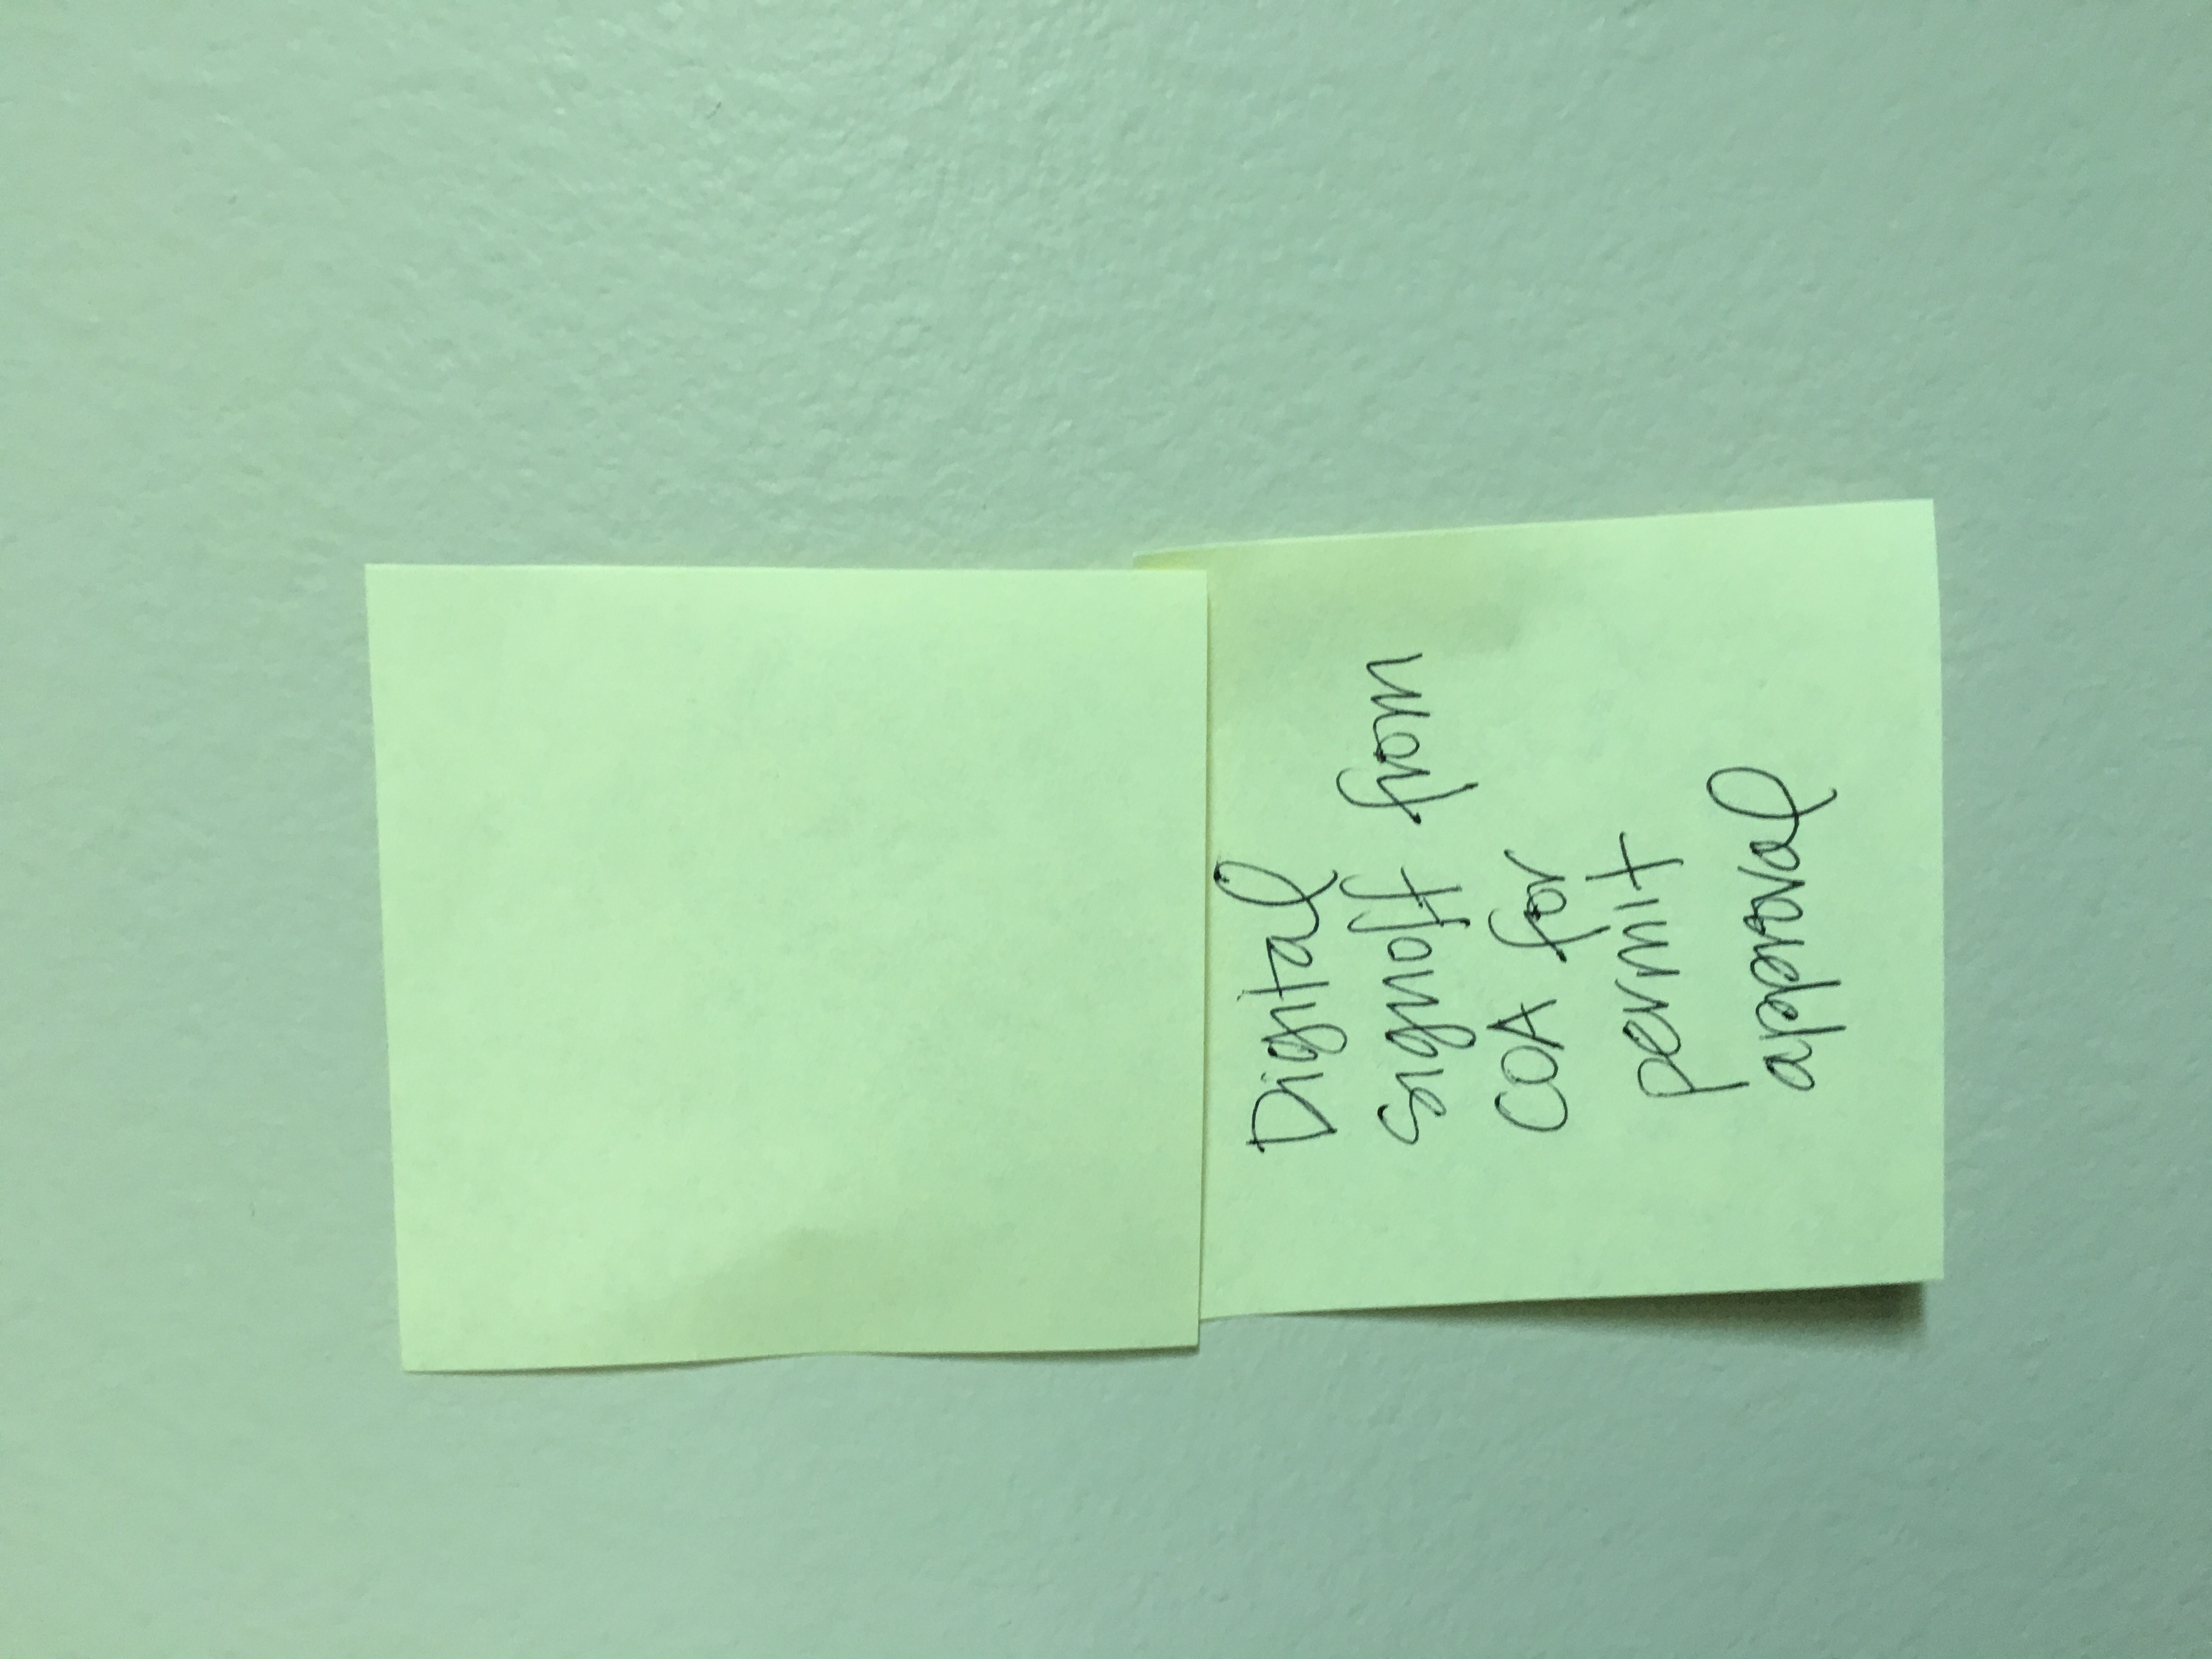 Digital
signoff from
COA for
permit
approval